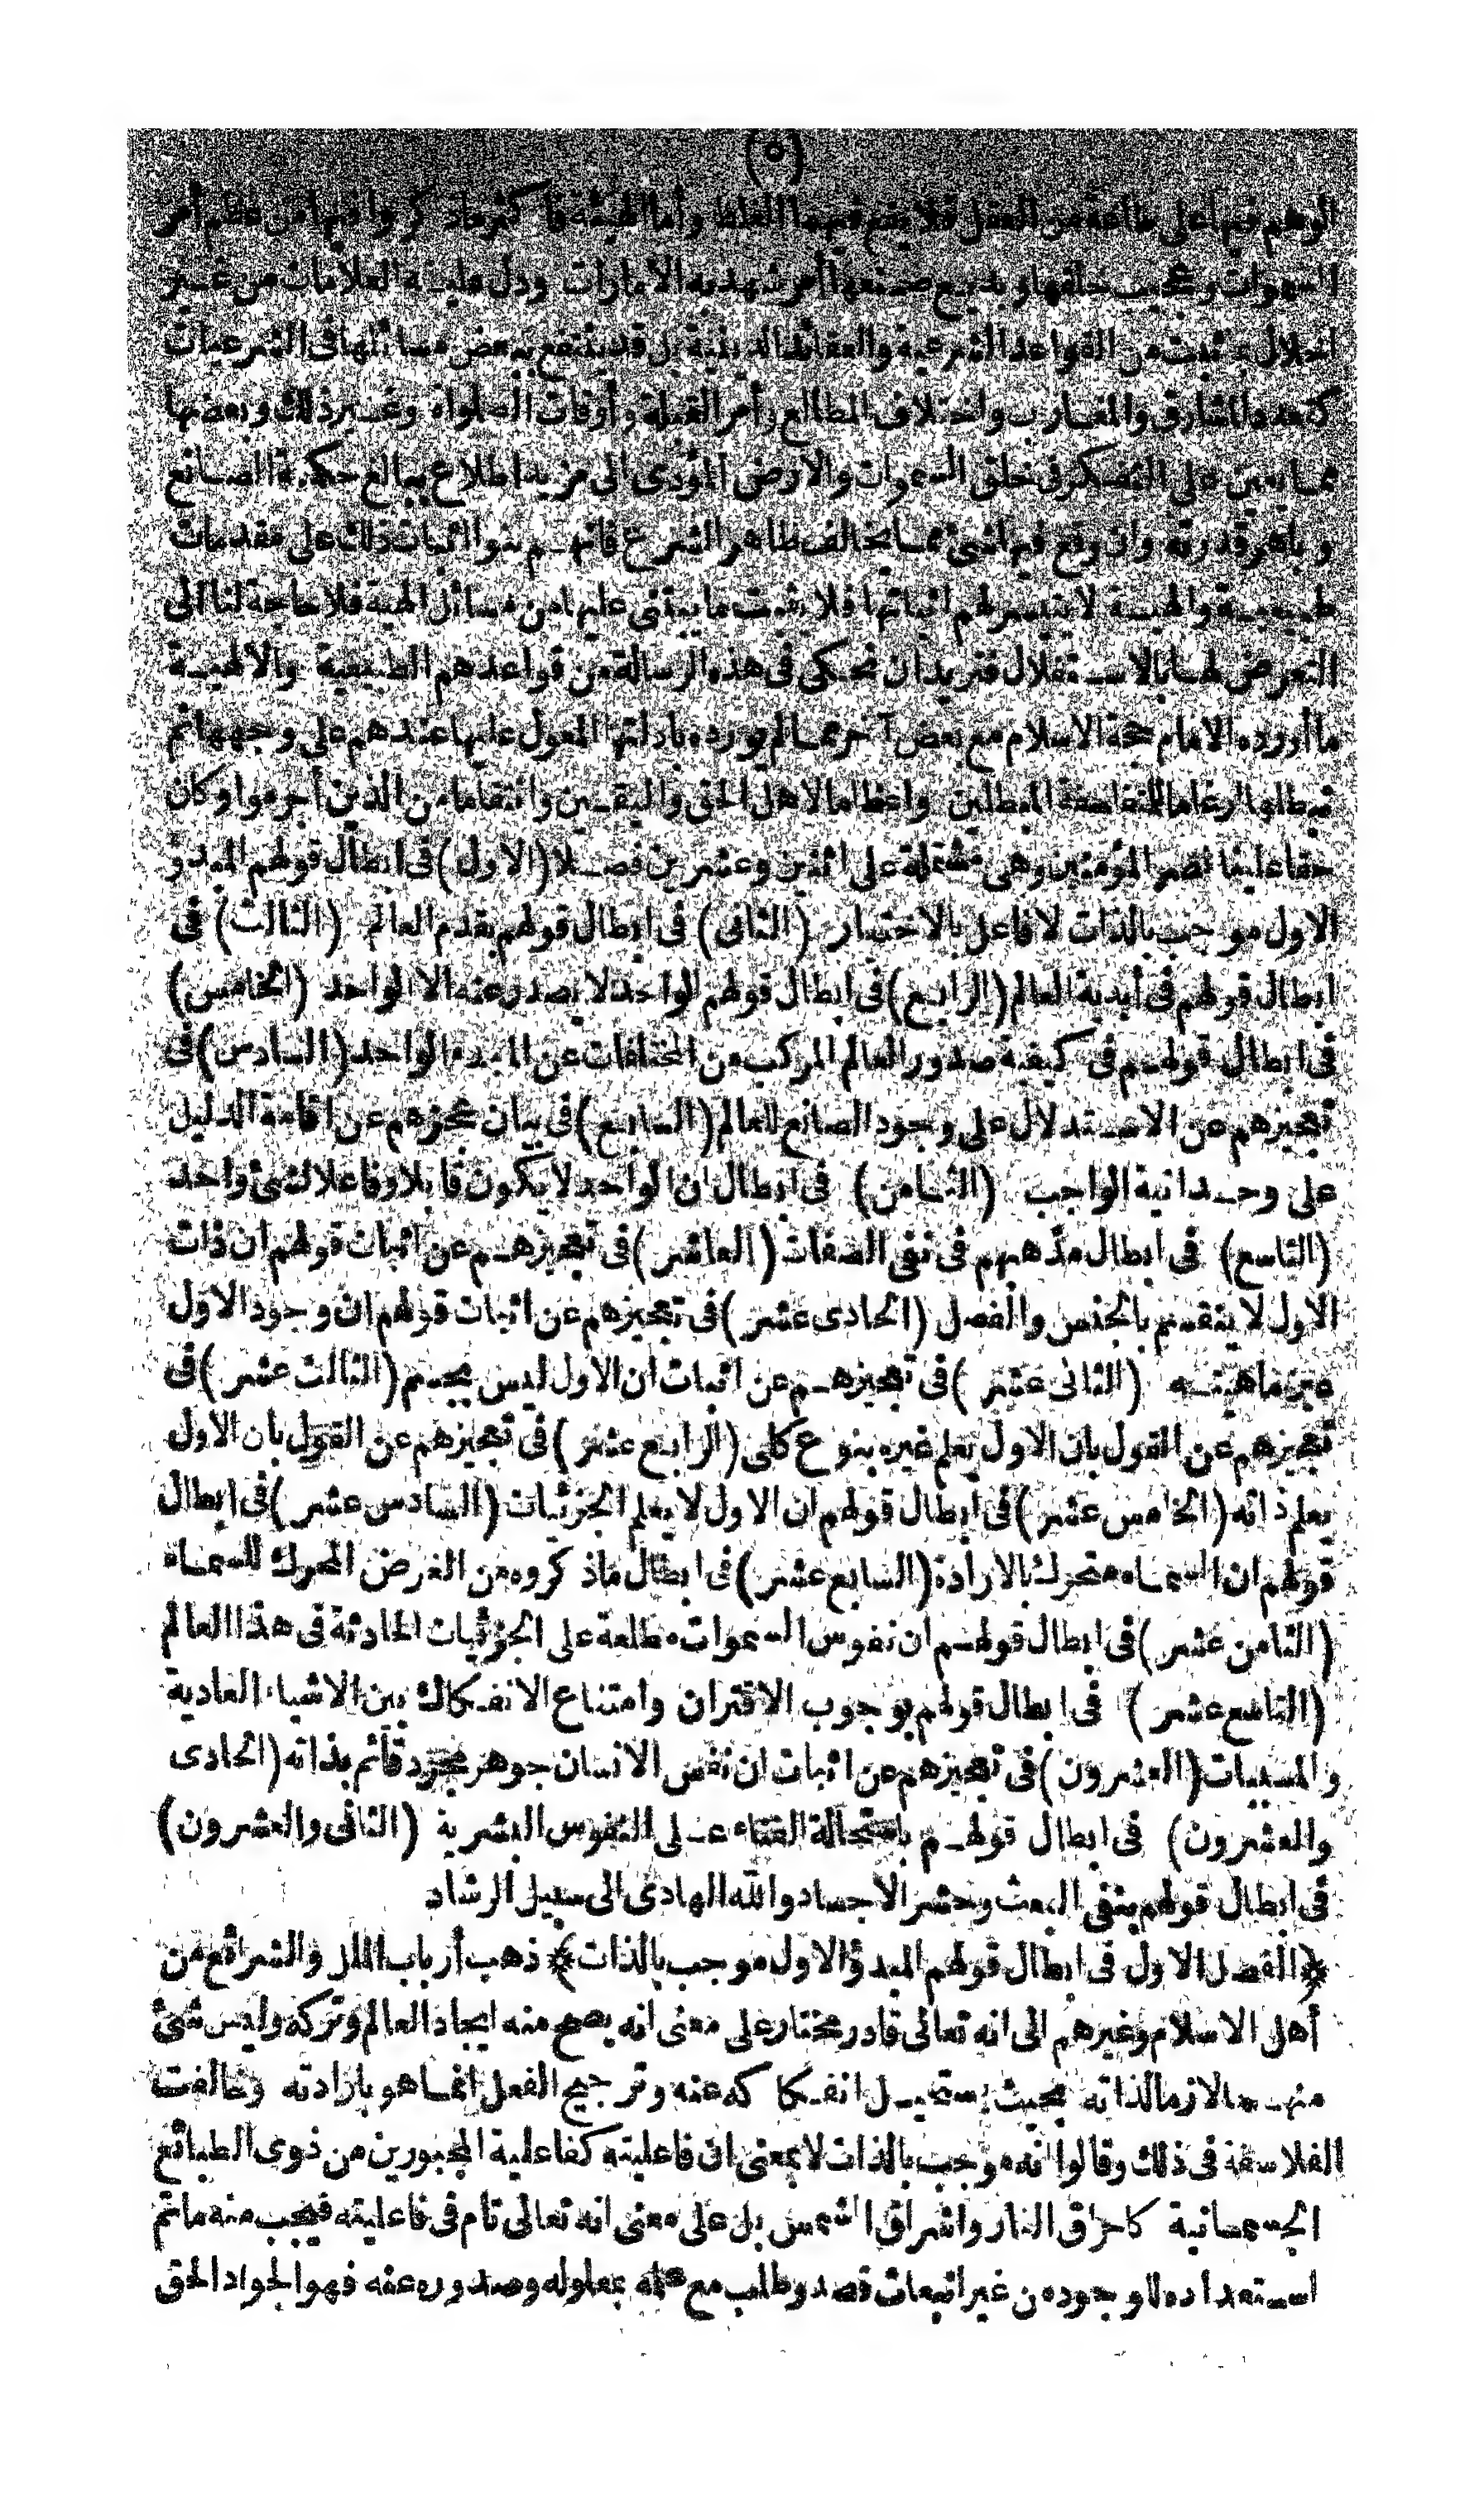 (٥)
الوهم فيها على طاعة من العقل فلا يقع فيهما الغلط وأما الهيئة فأكثر ماذكروا فيها من عظم أمر
السموات وعجيب خلقها وبديع صنعها أمر شهدت به الامارات ودل عليه العلامات من غير
اخلال بما ثبت من القواعد الشرعية والعقائد الدينية بل قد ينتفع ببعض مسائلها فى الشرعيات
كتعدد المشارق والمغارب واختلاف المطالع وأمر القبلة وأوقات الصلوات وغير ذلك وبعضها
مما يعين على التفكر فى خلق السموات والارض المؤدى الى مزيد اطلاع ببالغ حكمة الصانع
وباهر قدرته وان وقع فيها شئ مما يخالف ظاهر الشرع فانهم بنوا اثبات ذلك على مقدمات
طبيعية والهية لا يتيسر لهم اثباتها فلا يثبت ما يبتنى عليها من مسائل الهيئة فلا حاجة لنا الى
التعرض لها بالاستقلال فنريد ان نحكى فى هذه الرسالة من قواعدهم الطبيعية والالهية
ما أورده الامام حجة الاسلام مع بعض آخر مما لم يورده بأدلتها المعول عليها عندهم على وجهها ثم
نبطلها ارغاما للمتفلسفة المبطلين واعظاما لاهل الحق واليقين وانتقاما من الذين أجرموا وكان
حقا علينا نصر المؤمنين وهى مشتملة على اثنين وعشرين فصلا (الاول) فى ابطال قولهم المبدؤ
الاول موجب بالذات لا فاعل بالاختيار (الثانى) فى ابطال قولهم بقدم العالم (الثالث) فى
ابطال قولهم فى أبدية العالم (الرابع) فى ابطال قولهم الواحد لا يصدر عنه الا الواحد (الخامس)
فى ابطال قولهم فى كيفية صدور العالم المركب من المختلفات عن المبدء الواحد (السادس) فى
تعجيزهم عن الاستدلال على وجود الصانع للعالم (السابع) فى بيان عجزهم عن اقامة الدليل
على وحدانية الواجب (الثامن) فى ابطال ان الواحد لا يكون قابلا وفاعلا لشئ واحد
(التاسع) فى ابطال مذهبهم فى نفى الصفات (العاشر) فى تعجيزهم عن اثبات قولهم ان ذات
الاول لا ينقسم بالجنس والفصل (الحادى عشر) فى تعجيزهم عن اثبات قولهم ان وجود الاول
عين ماهيته (الثانى عشر) فى تعجيزهم عن اثبات ان الاول ليس بجسم (الثالث عشر) فى
تعجيزهم عن القول بان الاول يعلم غيره بنوع كلى (الرابع عشر) فى تعجيزهم عن القول بان الاول
يعلم ذاته (الخامس عشر) فى ابطال قولهم ان الاول لا يعلم الجزئيات (السادس عشر) فى ابطال
قولهم ان السماء متحرك بالارادة (السابع عشر) فى ابطال ماذكروه من الغرض المحرك للسماء
(الثامن عشر) فى ابطال قولهم ان نفوس السموات مطلعة على الجزئيات الحادثة فى هذا العالم
(التاسع عشر) فى ابطال قولهم بوجوب الاقتران وامتناع الانفكاك بين الاشياء العادية
والمسببات (العشرون) فى تعجيزهم عن اثبات ان نفس الانسان جوهر مجرد قائم بذاته (الحادى
والعشرون) فى ابطال قولهم باستحالة الفناء على النفوس البشرية (الثانى والعشرون)
فى ابطال قولهم بنفى البعث وحشر الاجساد والله الهادى الى سبيل الرشاد
﴿الفصل الاول فى ابطال قولهم المبدؤ الاول موجب بالذات﴾ ذهب أرباب الملل والشرائع من
أهل الاسلام وغيرهم الى انه تعالى قادر مختار على معنى انه يصح منه ايجاد العالم وتركه وليس شئ
منهما لازما لذاته بحيث يستحيل انفكاكه عنه وترجيح الفعل انما هو بارادته وخالفت
الفلاسفة فى ذلك وقالوا انه موجب بالذات لا بمعنى ان فاعليته كفاعلية المجبورين من ذوى الطبائع
الجسمانية كاحراق النار واشراق الشمس بل على معنى انه تعالى تام فى فاعليته فيجب منه ما تم
استعداده للوجود من غير انبعاث قصد وطلب مع علمه بمعلوله وصدوره عنه فهو الجواد الحق